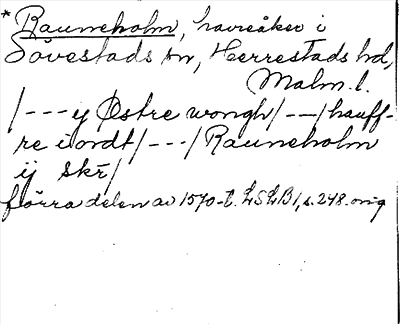 * Rauneholm, havreåker i
Sövestads sn, Herrestads hd,
Malm. l.
/---y Østre wongh/--/hauff-
re iordt/---/Rauneholm
ij skr̄/
förra delen av 1570-t. LSLB1, s. 248. orig